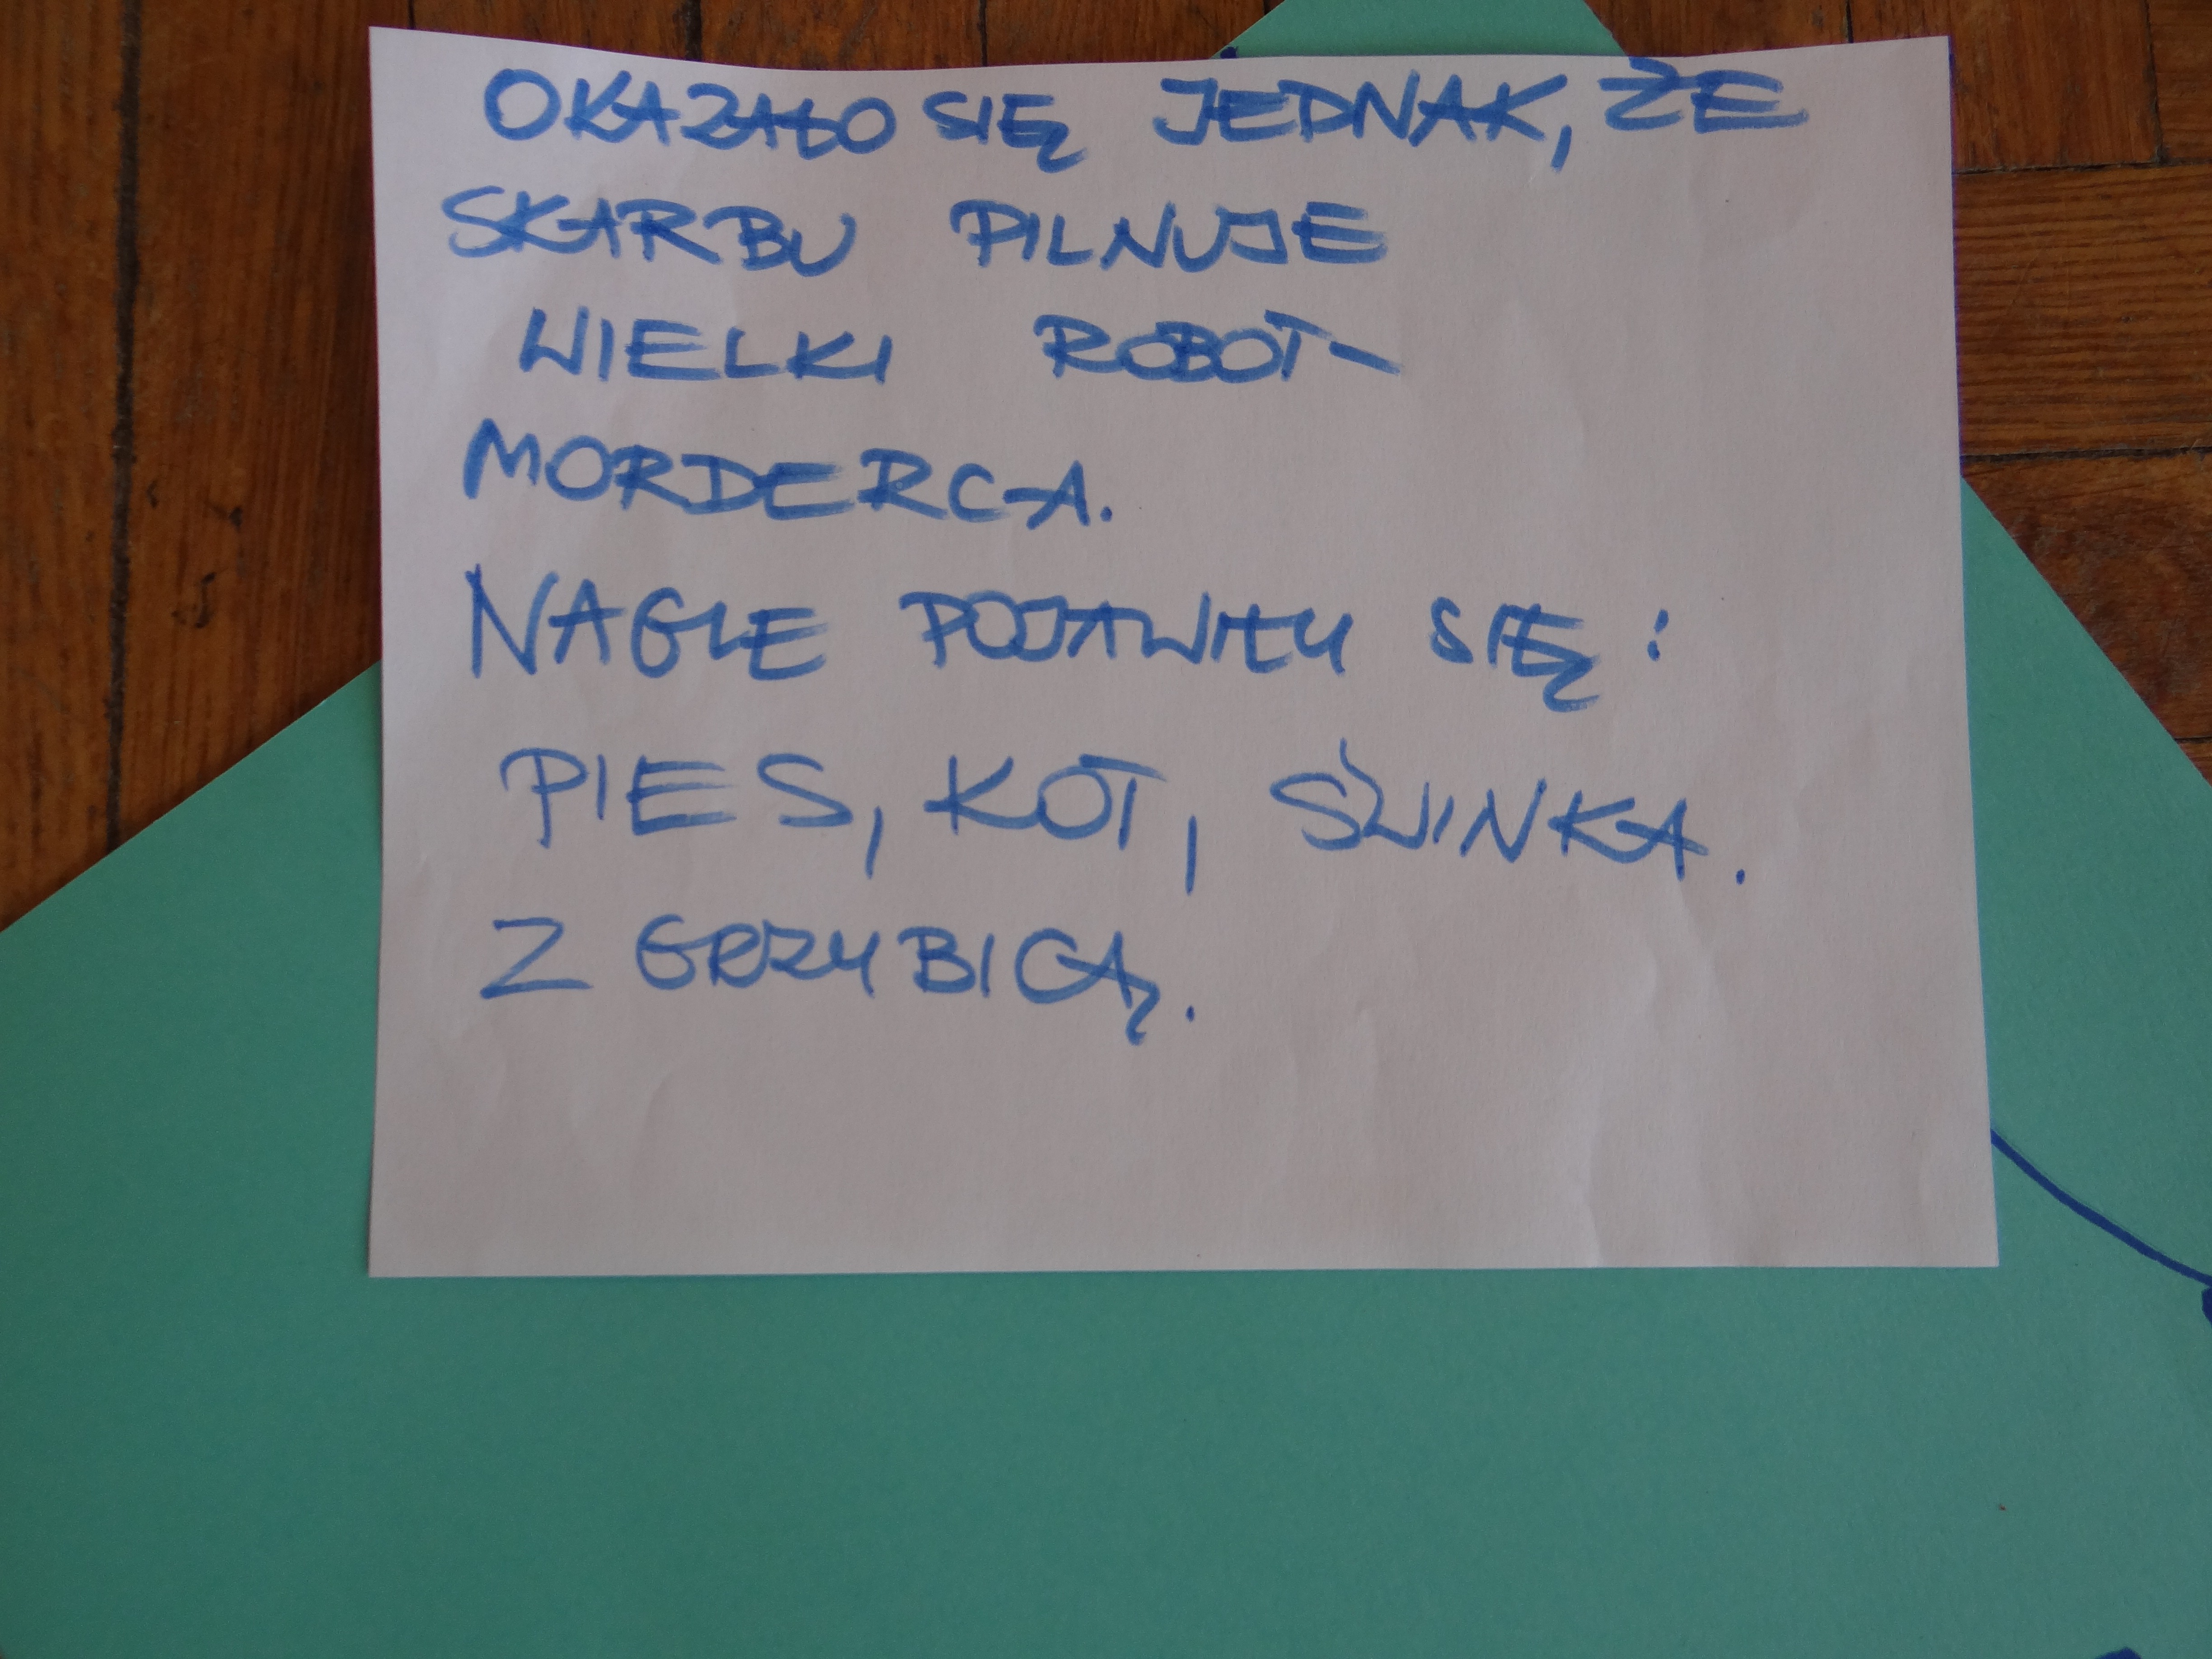 OKAZAŁO SIĘ JEDNAK, ŻE
SKARBU PILNUJE
WIELKI ROBOT-
MORDERCA.
NAGLE POJAWIŁY SIĘ:
PIES, KOT, ŚWINKA.
Z GRZYBICĄ.